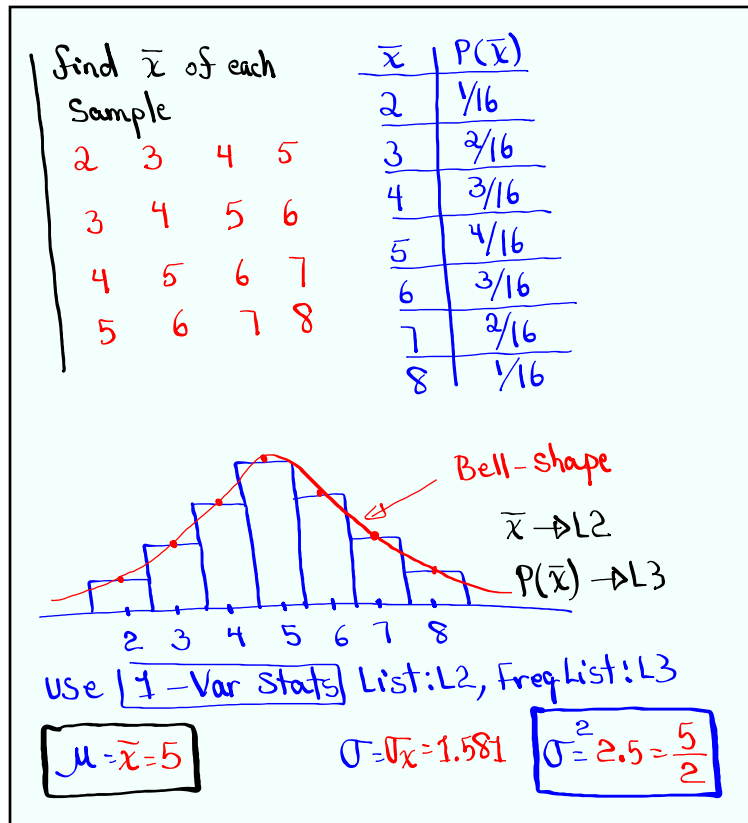 find x̄ of each
Sample
2 3 4 5
3 4 5 6
4 5 6 7
5 6 7 8
x̄ P(x̄)
2 1/16
3 2/16
4 3/16
5 4/16
6 3/16
7 2/16
8 1/16
Bell-shape
x̄ → L2
P(x̄) → L3
2 3 4 5 6 7 8
Use 1-Var Stats List: L2, FreqList: L3
μ = x̄ = 5
σ = σx = 1.581
σ² = 2.5 = 5/2